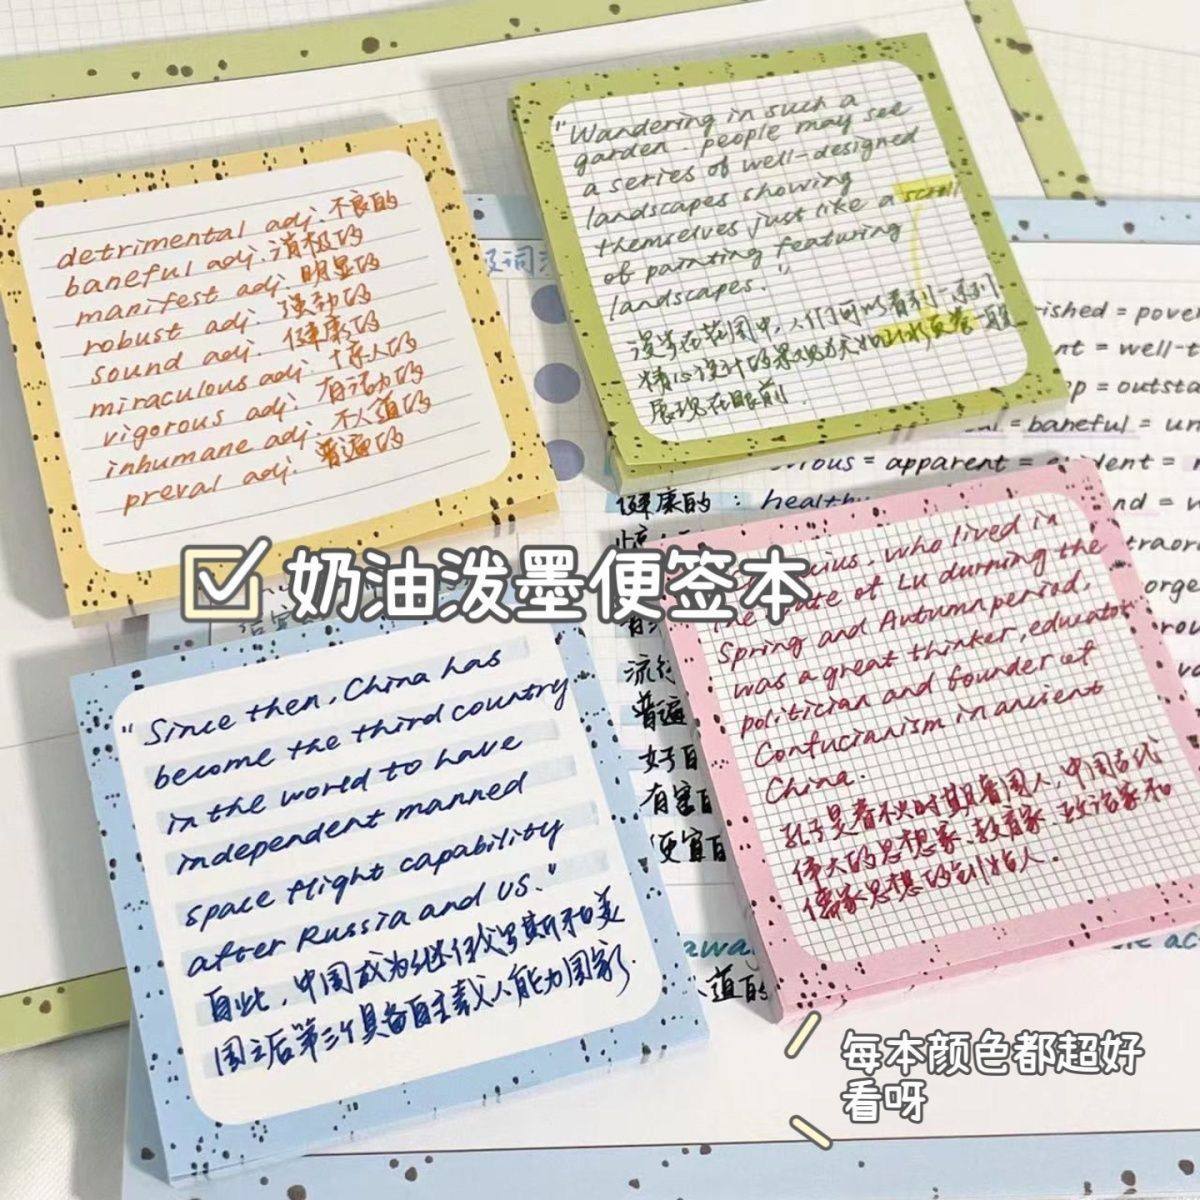 detrimental adj. 不良的
baneful adj. 消极的
manifest adj. 明显的
robust adj. 强劲的
sound adj. 健康的
miraculous adj. 惊人的
vigorous adj. 有活力的
inhumane adj. 不人道的
preval adj. 普遍的
"Wandering in such a
garden. people may see
a series of well-designed
landscapes showing
themselves just like a scroll
of painting featuring
landscapes."
漫步在花园中,人们可以看到一系列
精心设计的景观犹如山水画卷一般
展现在眼前.
奶油泼墨便签本
"Since then, China has
become the third country
in the world to have
independent manned
space flight capability
after Russia and US."
自此,中国成为继俄罗斯和美
国之后第三个具备自主载人能力国家.
who lived in
the of Lu durning the
Spring and Autumn period.
was a great thinker, educator
politician and founder of
Confucianism in ancient
China.
孔子是春秋时期鲁国人,中国古代
伟大的思想家、教育家、政治家和
儒家思想的创始人.
= pover
= well-t
= outsta
= baneful = un
= apparent =
健康的: healthy
普遍
有害
便宜
道的
每本颜色都超好
看呀